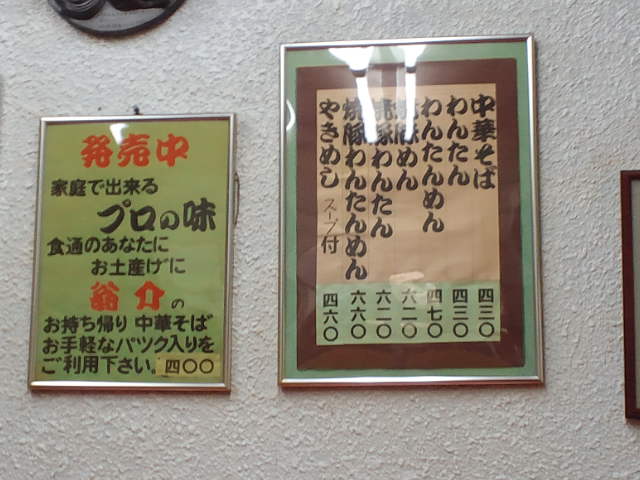 発売中
家庭で出来る
プロの味
食通のあなたに
お土産げに
翁介の
お持ち帰り 中華そば
お手軽なパツク入りを
ご利用下さい。四〇〇
中華そば 四三〇
わんたん 四三〇
わんたんめん 四七〇
焼豚めん 六二〇
焼豚わんたん 六二〇
焼豚わんたんめん 六六〇
やきめし スープ付 四六〇